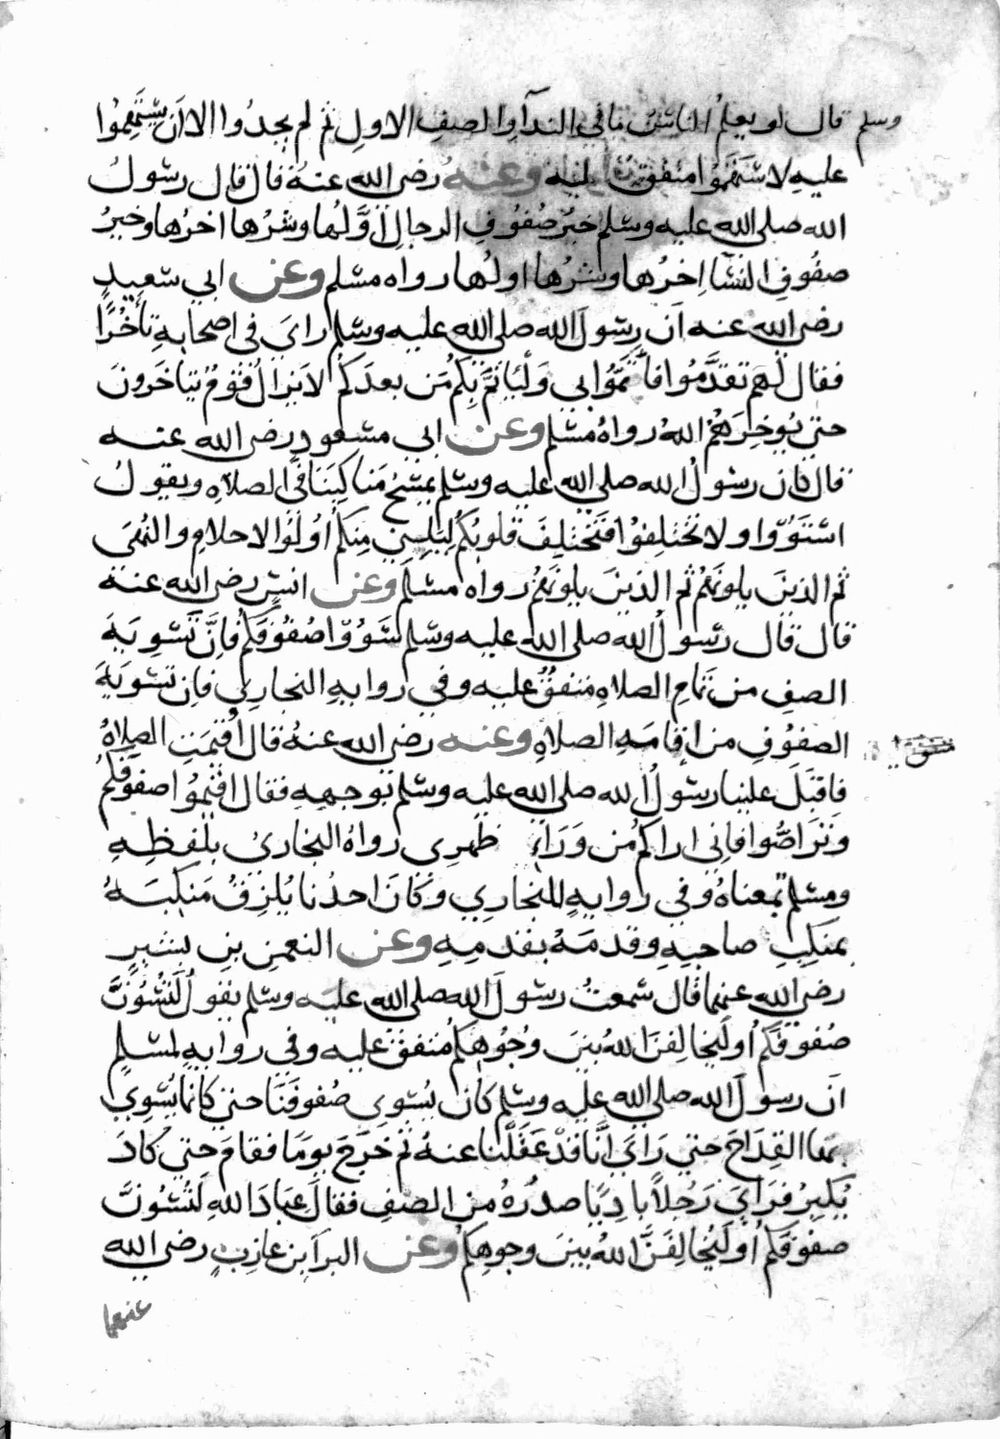 وسلم قال لو يعلم الناس ما في النداء والصف الاول ثم لم يجدوا الا ان يستهموا
عليه لاستهموا متفق عليه وعنه رضي الله عنه قال قال رسول
الله صلى الله عليه وسلم خير صفوف الرجال اولها وشرها اخرها وخير
صفوف النساء اخرها وشرها اولها رواه مسلم وعن ابي سعيد
رضي الله عنه ان رسول الله صلى الله عليه وسلم راى في اصحابه تأخرًا
فقال لهم تقدموا فأتموا بي وليأتم بكم من بعدكم لا يزال قوم يتأخرون
حتى يؤخرهم الله رواه مسلم وعن ابي مسعود رضي الله عنه
قال كان رسول الله صلى الله عليه وسلم يمسح مناكبنا في الصلاة ويقول
استووا ولا تختلفوا فتختلف قلوبكم ليليني منكم اولوا الاحلام والنهى
ثم الذين يلونهم ثم الذين يلونهم رواه مسلم وعن انس رضي الله عنه
قال قال رسول الله صلى الله عليه وسلم سووا صفوفكم فان تسوية
الصف من تمام الصلاة متفق عليه وفي رواية البخاري فان تسوية
الصفوف من اقامة الصلاة وعنه رضي الله عنه قال اقيمت الصلاة
فاقبل علينا رسول الله صلى الله عليه وسلم بوجهه فقال اقيموا صفوفكم
وتراصوا فاني اراكم من وراء ظهري رواه البخاري بلفظه
ومسلم بمعناه وفي رواية للبخاري وكان احدنا يلزق منكبه
بمنكب صاحبه وقدمه بقدمه وعن النعمن بن بشير
رضي الله عنهما قال سمعت رسول الله صلى الله عليه وسلم يقول لتسون
صفوفكم او ليخالفن الله بين وجوهكم متفق عليه وفي رواية لمسلم
ان رسول الله صلى الله عليه وسلم كان يسوي صفوفنا حتى كانما يسوي
بها القداح حتى راى انا قد غفلنا عنه ثم خرج يوما فقام حتى كاد
يكبر فراى رجلا باديا صدره من الصف فقال عباد الله لتسون
صفوفكم او ليخالفن الله بين وجوهكم وعن البرا بن عازب رضي الله
عنهما